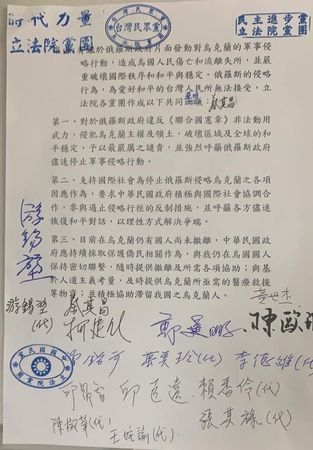 時代力量
立法院黨團
台灣民眾黨
民主進步黨
立法院黨團
於俄羅斯政府片面發動對烏克蘭的軍事侵
略行動,造成烏國人民傷亡和流離失所,並嚴
重破壞國際秩序和和平與穩定。俄羅斯的侵略
行為,為愛好和平的台灣人民所無法接受,立
法院各黨團作成以下共同
蔡其昌
第一、對於俄羅斯政府違反《聯合國憲章》非法動用
武力,侵犯烏克蘭主權及領土,破壞區域及全球的和
平穩定,予以最嚴厲之譴責,並強烈呼籲俄羅斯政府
儘速停止軍事侵略行動。
第二、支持國際社會為停止俄羅斯侵略烏克蘭之各項
因應作為,要求中華民國政府積極與國際社會協調合
作,參與各方遏止侵略行徑的反制措施,並呼籲各方儘速
恢復和平對話,以理性方式解決爭端。
第三、目前在烏克蘭仍有國人尚未撤離,中華民國政
府應持續採取保護僑民相關作為,我在烏國國人
保持密切聯繫,隨時提供撤離及所需各項協助;與基
於人道主義考量,及時提供烏克蘭所亟需的醫療救援
等物資;並積極協助滯留我國之烏克蘭人。
游錫堃
游錫堃
(代)
蔡其昌
柯建銘
鄭運鵬
陳歐珀
中國國民黨
立法院黨團
李德維(代)
邱顯智
邱臣遠
賴香伶(代)
陳椒華(代)
王婉諭(代)
張其祿(代)